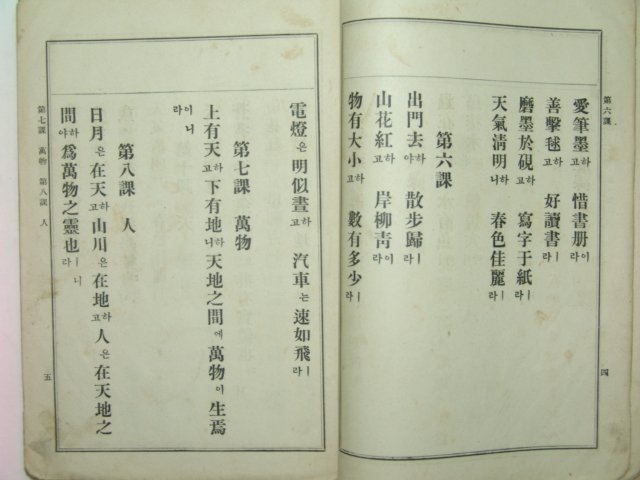 第六課
愛筆墨하고 惜書册이라
善擊毬하고 好讀書ㅣ라
磨墨於硯하고 寫字于紙ㅣ라
天氣淸明하니 春色佳麗ㅣ라
第六課
出門去하야 散步歸ㅣ라
山花紅하고 岸柳靑이라
物有大小하고 數有多少ㅣ라
四
電燈은 明似晝하고 汽車는 速如飛ㅣ라
第七課 萬物
上有天하고 下有地하니 天地之間에 萬物이 生焉이니
라
第八課 人
日月은 在天하고 山川은 在地하고 人은 在天地之
間하야 爲萬物之靈也ㅣ니라
第七課 萬物 第八課 人
五